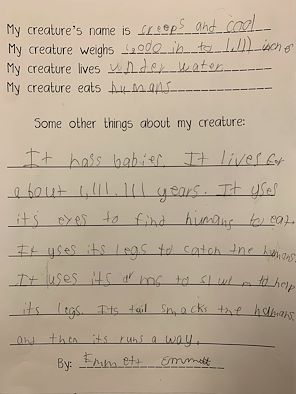 My creature's name is creeps and cool
My creature weighs 12000 in to 1,111 inches
My creature lives under water
My creature eats humans
Some other things about my creature:
It hass babies. It lives for
about 1,111,111 years. It yses
it's eyes to find humans to eat.
It yses its legs to catch the humans.
It uses its arms to swim to help
its legs. Its tail smacks the humans
and then its runs a way.
By: Emmett Emmett